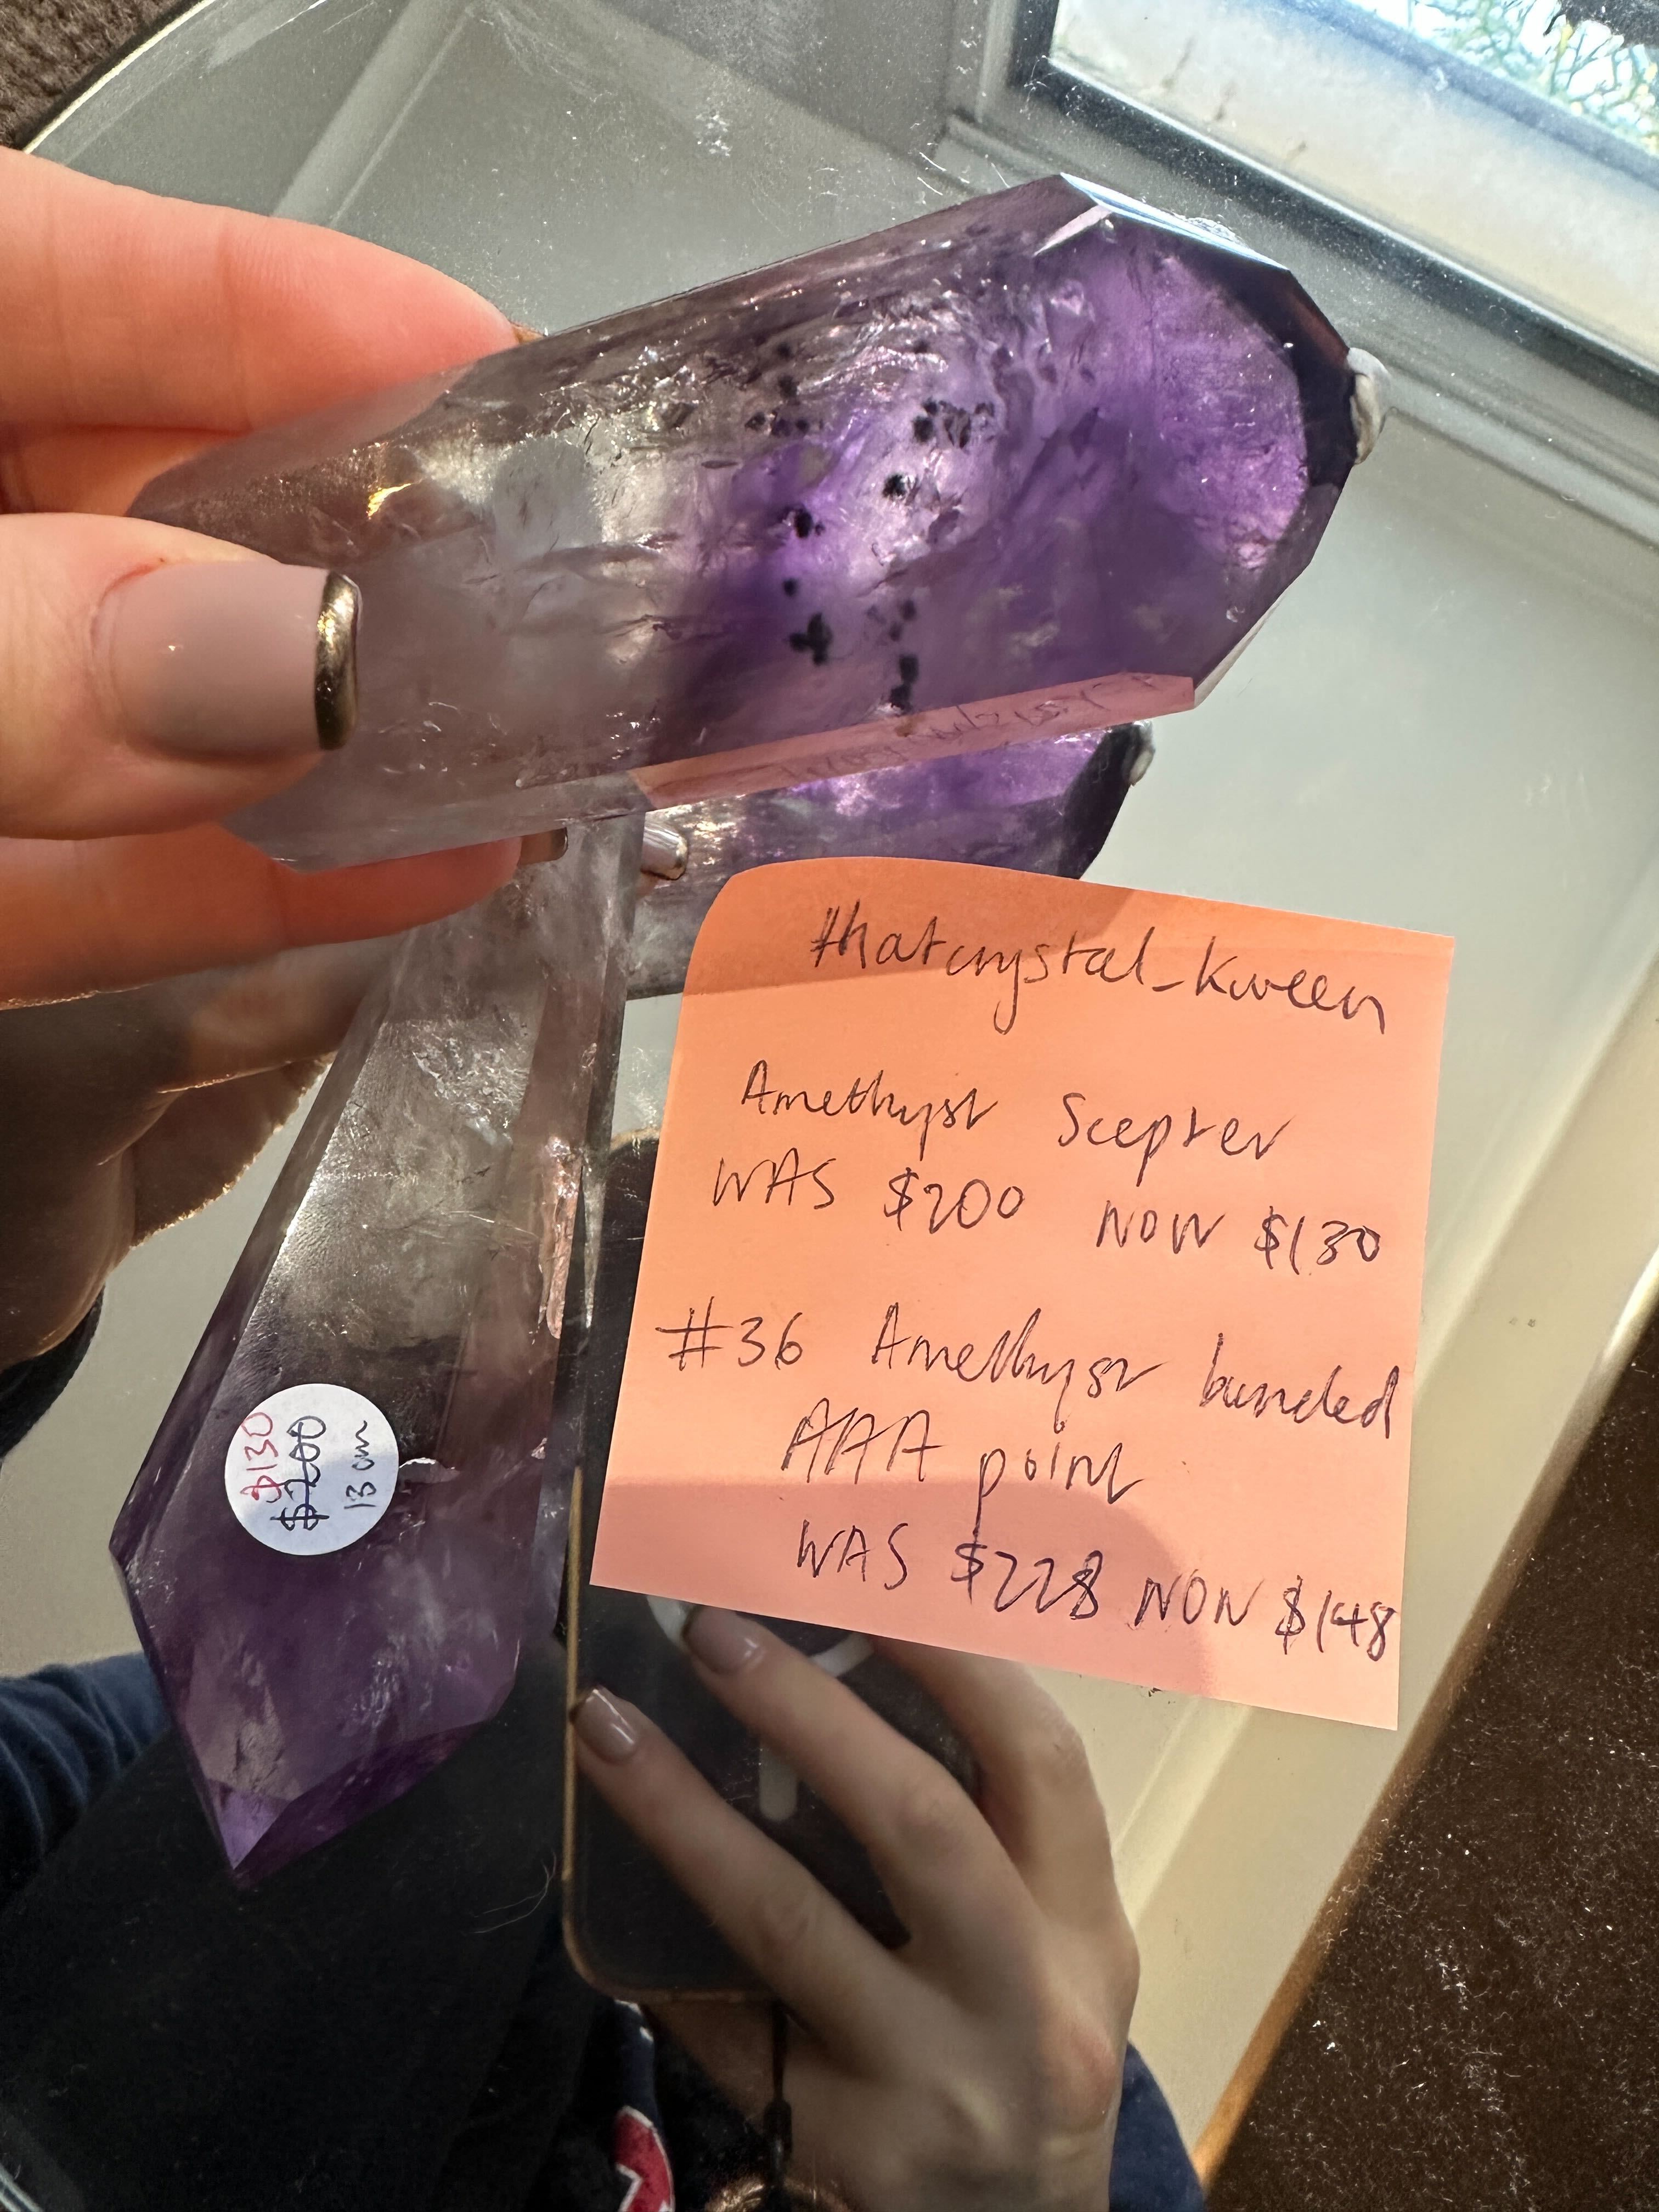 thatcrystal_kween
Amethyst Scepter
WAS $200 NOW $130
#36 Amethyst banded
AAA point
WAS $228 NOW $148
$130
$200
13 cm